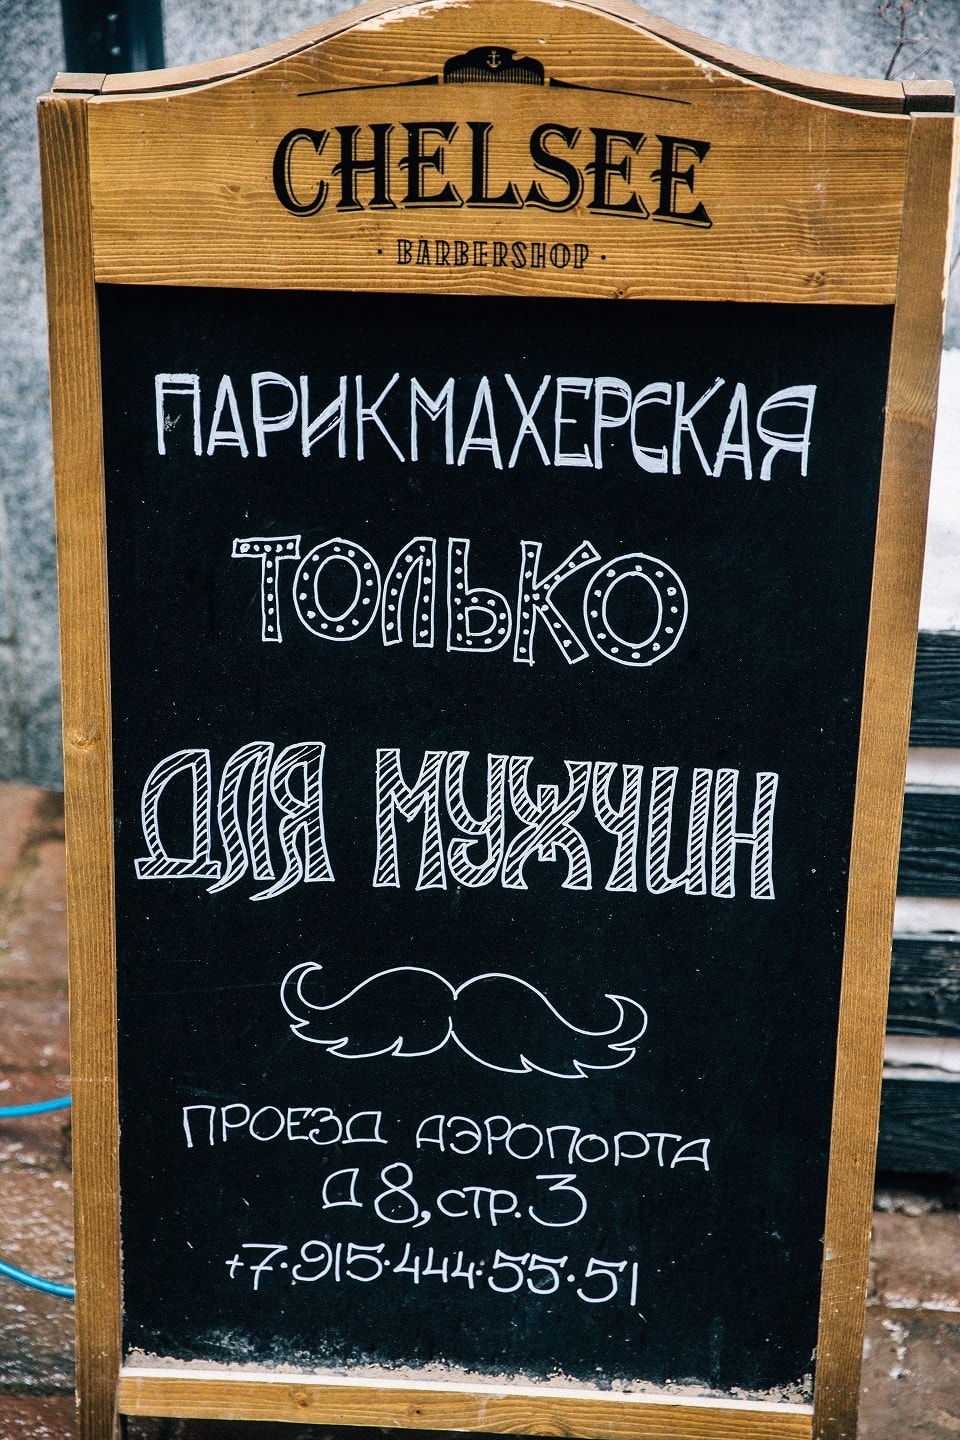 CHELSEE
· BARBERSHOP ·
ПАРИКМАХЕРСКАЯ
ТОЛЬКО
ДЛЯ МУЖЧИН
ПРОЕЗД АЭРОПОРТА
Д 8, СТР. 3
+7·915·444·55·51